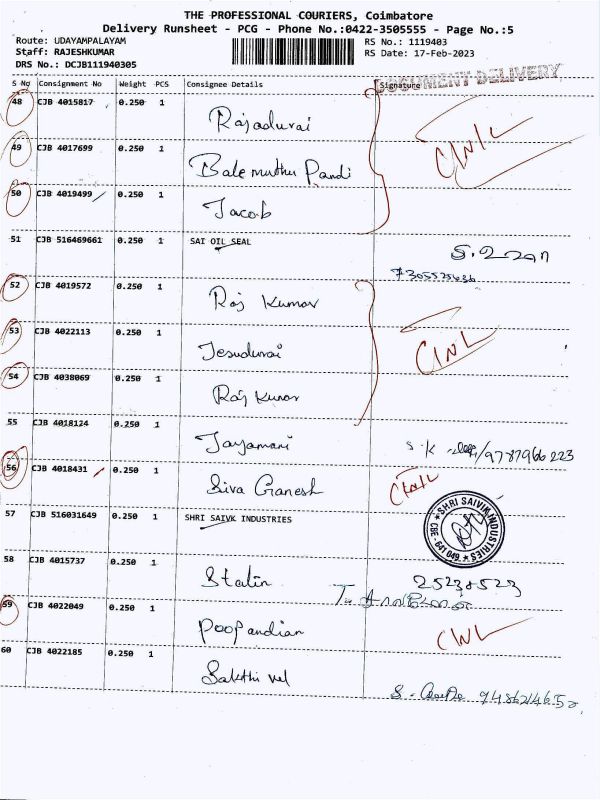 THE PROFESSIONAL COURIERS, Coimbatore
Delivery Runsheet - PCG - Phone No.:0422-3505555 - Page No.:5
Route: UDAYAMPALAYAM
RS No.: 1119403
Staff: RAJESHKUMAR
RS Date: 17-Feb-2023
DRS No.: DCJB111940305
DOCUMENT DELIVERY
S No Consignment No Weight PCS Consignee Details Signature
48 CJB 4015817 0.250 1 Rajadurai
49 CJB 4017699 0.250 1 Balemuthu Pandi
50 CJB 4019499 0.250 1 Jacob
51 CJB 516469661 0.250 1 SAI OIL SEAL
52 CJB 4019572 0.250 1 Raj Kumar
53 CJB 4022113 0.250 1 Jesudurai
54 CJB 4038069 0.250 1 Raj Kumar
55 CJB 4018124 0.250 1 Jayamani 9787966223
56 CJB 4018431 0.250 1 Siva Ganesh
57 CJB 516031649 0.250 1 SHRI SAIVK INDUSTRIES
SHRI SAIVIK INDUSTRIES
CBE-641 049
58 CJB 4015737 0.250 1 Stalin
59 CJB 4022049 0.250 1 Poopandian
60 CJB 4022185 0.250 1 Sakthi vel